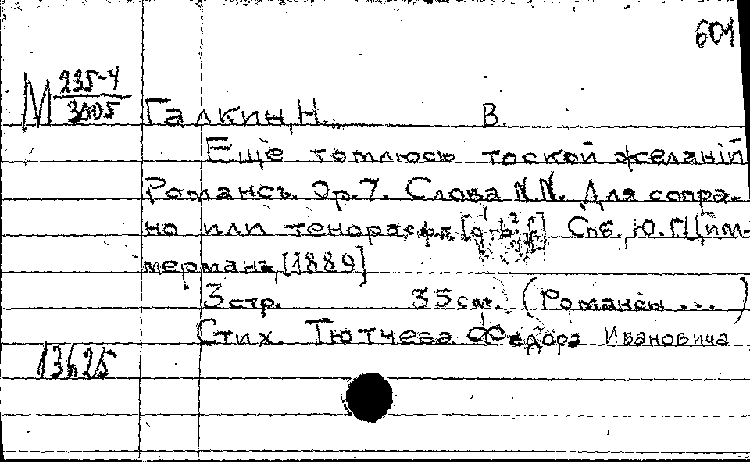 601
М 235-4
3005
Галкин, Н. В.
Еще томлюсь тоской желаній
Романсъ. Ор.7. Слова N.N. Для сопра-
но или тенора с фп. Спб., Ю.Г. Цим-
мерманъ, [1889]
3 стр. 35 см. (Романсы ...)
Стих. Тютчева Федора Ивановича
13625